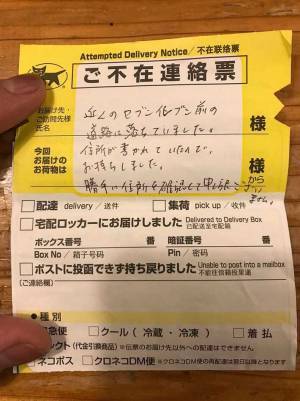 Attempted Delivery Notice / 不在联络票
ご不在連絡票
お届け先・
ご訪問先様
氏名
近くのセブンイレブン前の
道路に落ちていました。
様
今回
お届けの
お荷物は
住所が書かれていたので、
お持ちしました。
様から
勝手に住所を確認して申し訳ございません。
□配達 delivery / 送件
□集荷 pick up / 收件
□宅配ロッカーにお届けしました Delivered to Delivery Box 已配送至宅配箱
ボックス番号 番 暗証番号 番
Box No / 箱子号码 Pin / 密码
□ポストに投函できず持ち戻りました Unable to post into a mailbox 不能往信箱投里递
(ご連絡欄)
●種別
急便 □クール (冷蔵・冷凍) □着払
クト (代金引換商品) ※伝票のお届け先以外への配達はできません。
□ネコポス □クロネコDM便 ※クロネコDM便の再配達は翌日以降となります